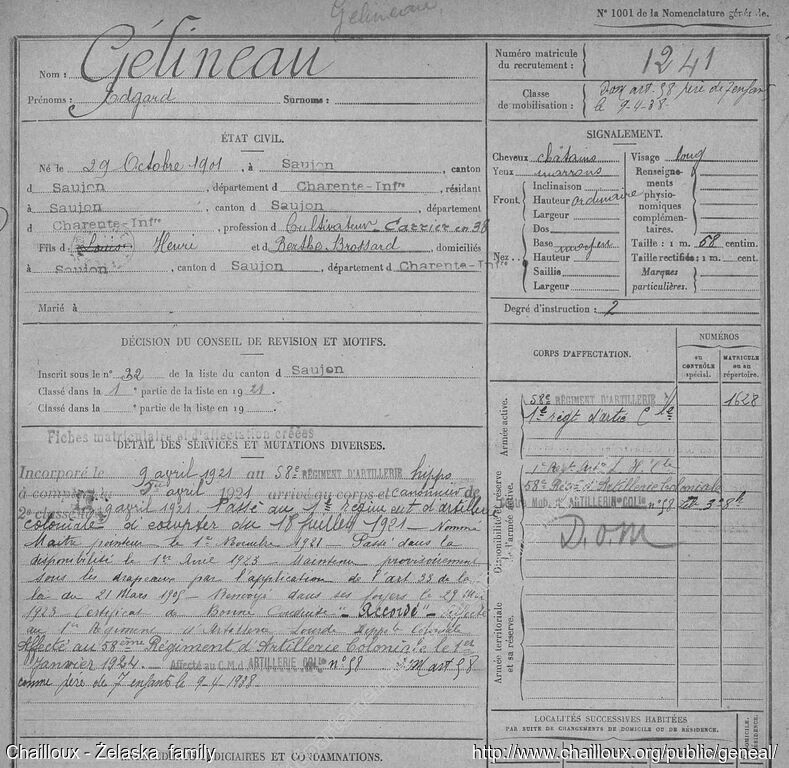 Gélineau
N° 1001 de la Nomenclature générale.
Nom : Gélineau
Prénoms : Edgard Surnoms :
Numéro matricule du recrutement : 1241
Classe de mobilisation : Dom art. 58 père de 7 enfants
le 9-4-38.
ÉTAT CIVIL.
Né le 29 Octobre 1901, à Saujon, canton
d Saujon, département d Charente-Infre, résidant
à Saujon, canton d Saujon, département
d Charente-Infre, profession d Cultivateur - Carrier en 38
Fils d Louis Henri et d Berthe Brossard, domiciliés
à Saujon, canton d Saujon, département d Charente-Infre
Marié à
SIGNALEMENT.
Cheveux châtains
Yeux marrons
Front : Inclinaison
Hauteur ordinaire
Largeur
Nez : Dos
Base moyen
Hauteur
Saillie
Largeur
Visage long
Renseignements physionomiques complémentaires.
Taille : 1 m. 58 centim.
Taille rectifiée : 1 m. cent.
Marques particulières.
Degré d'instruction : 2
DÉCISION DU CONSEIL DE REVISION ET MOTIFS.
Inscrit sous le n° 32 de la liste du canton d Saujon
Classé dans la 1e partie de la liste en 1921
Classé dans la e partie de la liste en 19
Fiches matriculaire et d'affectation créées
DÉTAIL DES SERVICES ET MUTATIONS DIVERSES.
Incorporé le 9 avril 1921 au 58e RÉGIMENT D'ARTILLERIE hippo
à compter du avril 1921 arrivé au corps et canonnier de
2e classe 9 avril 1921. Passé au 1er régiment d'artillerie
coloniale à compter du 18 juillet 1921 - Nommé
Maitre pointeur le 1er Novembre 1921 - Passé dans la
disponibilité le 1er Avril 1923 - Maintenu provisoirement
sous les drapeaux par l'application de l'art 33 de la
loi du 21 Mars 1905 - Renvoyé dans ses foyers le 29 Mai
1923 Certificat de Bonne Conduite "Accordé" - Affecté
au 1er Régiment d'Artillerie Lourde Hippo Coloniale
Affecté au 58ème Régiment d'Artillerie Coloniale le 1er
Janvier 1924. - Affecté au C.M.d ARTILLERIE COLle n° 58 Dom art 58
comme père de 7 enfants le 9-4-1938
CORPS D'AFFECTATION.
NUMÉROS
au CONTRÔLE spécial.
MATRICULE ou au répertoire.
Armée active.
58e RÉGIMENT D'ARTILLERIE 1628
1er régt d'artie Cle
Disponibilité et réserve de l'armée active.
58e Régt d'Artillerie Coloniale
Mob. d' ARTILLERIE COLle n° 58
D.O.M
Armée territoriale et sa réserve.
LOCALITÉS SUCCESSIVES HABITÉES
PAR SUITE DE CHANGEMENTS DE DOMICILE OU DE RÉSIDENCE.
DOMICILE
JUDICIAIRES ET CONDAMNATIONS.
Chailloux - Želaska family
http://www.chailloux.org/public/geneal/